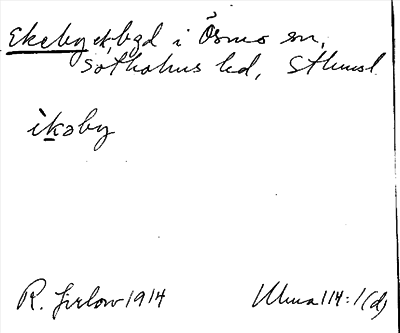 Ekeby ek, bgd i Ösmo sn,
Sotholms hd, Sthmsl.
ìkəby
R. Jirlow 1914
Ulma 114:1(d)